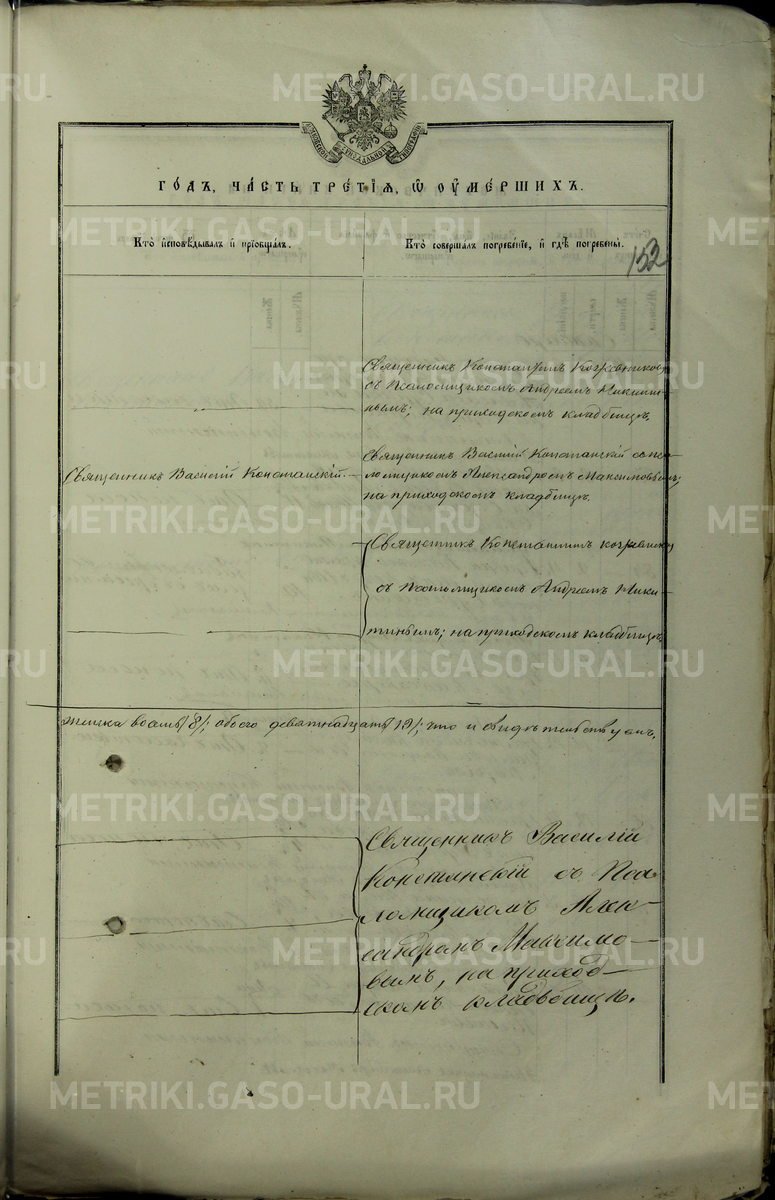 METRIKI.GASO-URAL.RU
СѴНОДАЛЬНОЙ
ГО́ДЪ, ЧА́СТЬ ТРЕ́ТІѦ, Ѡ ОУМЕ́РШИХЪ.
Кто̀ и҆сповѣ́дывалъ и҆ прїѡбща́лъ.
Кто̀ соверша́лъ погребе́нїе, и҆ гдѣ̀ погребены̀.
152
Священникъ Константинъ Козревниковъ
съ Псаломщикомъ Андреемъ Никити-
нымъ; на приходскомъ кладбищѣ.
Священникъ Василій Констанскій.
Священникъ Василій Констанскій съ пса-
ломщикомъ Александромъ Максимовымъ;
на приходскомъ кладбищѣ.
Священникъ Константинъ
съ Псаломщикомъ Андреемъ Ники-
тинымъ; на приходскомъ кладбищѣ.
женска восемь /8/; обоего девятнадцать /19/; что и свидѣтельствуемъ.
Священникъ Василій
Констанскій съ Пса-
ломщикомъ Алек-
сандромъ Максимо-
вымъ, на приход-
скомъ кладбищѣ.